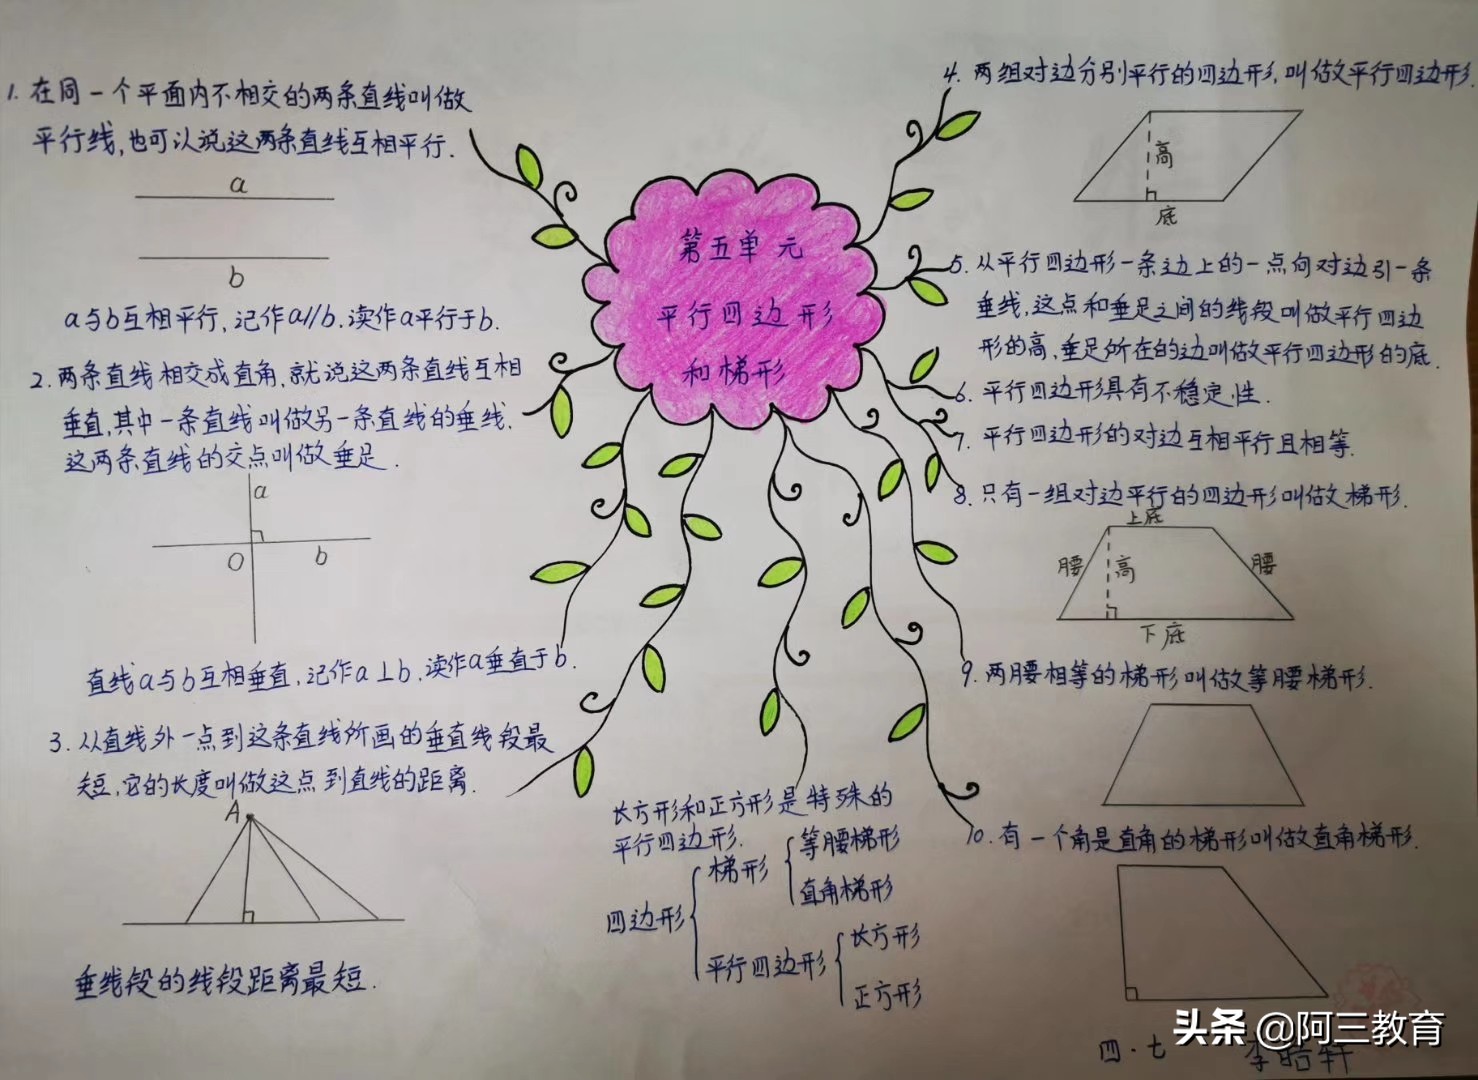 第五单元
平行四边形
和梯形
1. 在同一个平面内不相交的两条直线叫做
平行线,也可以说这两条直线互相平行.
a
b
a与b互相平行,记作a//b.读作a平行于b.
2. 两条直线相交成直角,就说这两条直线互相
垂直,其中一条直线叫做另一条直线的垂线.
这两条直线的交点叫做垂足.
a
O
b
直线a与b互相垂直,记作a⊥b,读作a垂直于b.
3. 从直线外一点到这条直线所画的垂直线段最
短,它的长度叫做这点到直线的距离.
A
垂线段的线段距离最短.
4. 两组对边分别平行的四边形,叫做平行四边形.
高
底
5. 从平行四边形一条边上的一点向对边引一条
垂线,这点和垂足之间的线段叫做平行四边
形的高,垂足所在的边叫做平行四边形的底.
6. 平行四边形具有不稳定性.
7. 平行四边形的对边互相平行且相等.
8. 只有一组对边平行的四边形叫做梯形.
上底
腰
高
腰
下底
9. 两腰相等的梯形叫做等腰梯形.
10. 有一个角是直角的梯形叫做直角梯形.
长方形和正方形是特殊的
平行四边形.
四边形
梯形
等腰梯形
直角梯形
平行四边形
长方形
正方形
四·七
李皓轩
头条 @阿三教育